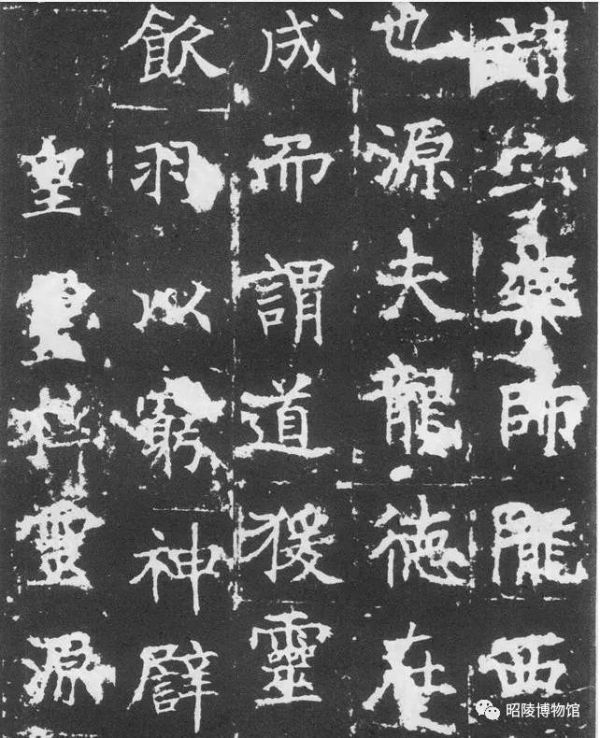 靖字藥師隴西
也源夫龍德在
成而謂道猨靈
飲羽以窮神譬
皇靈源
昭陵博物馆